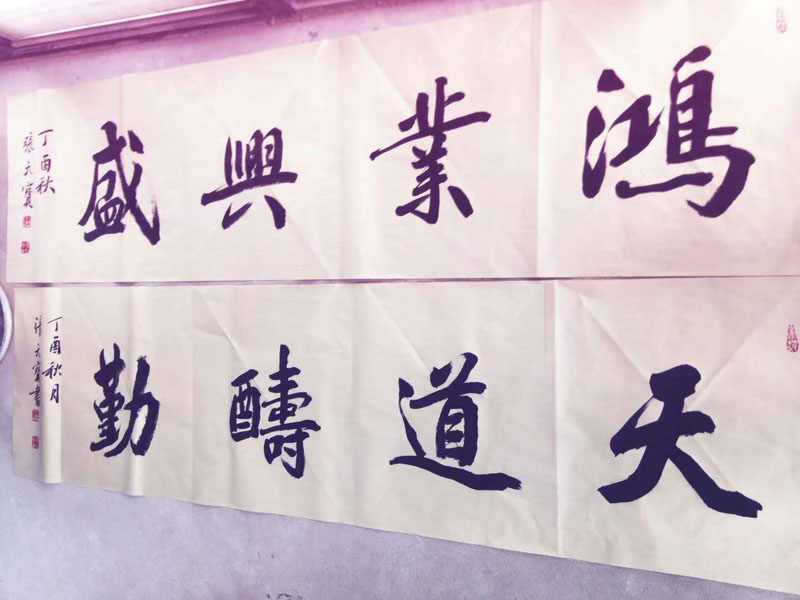 鴻業興盛
丁酉秋
張天寶
天道醻勤
丁酉秋月
張天寶書